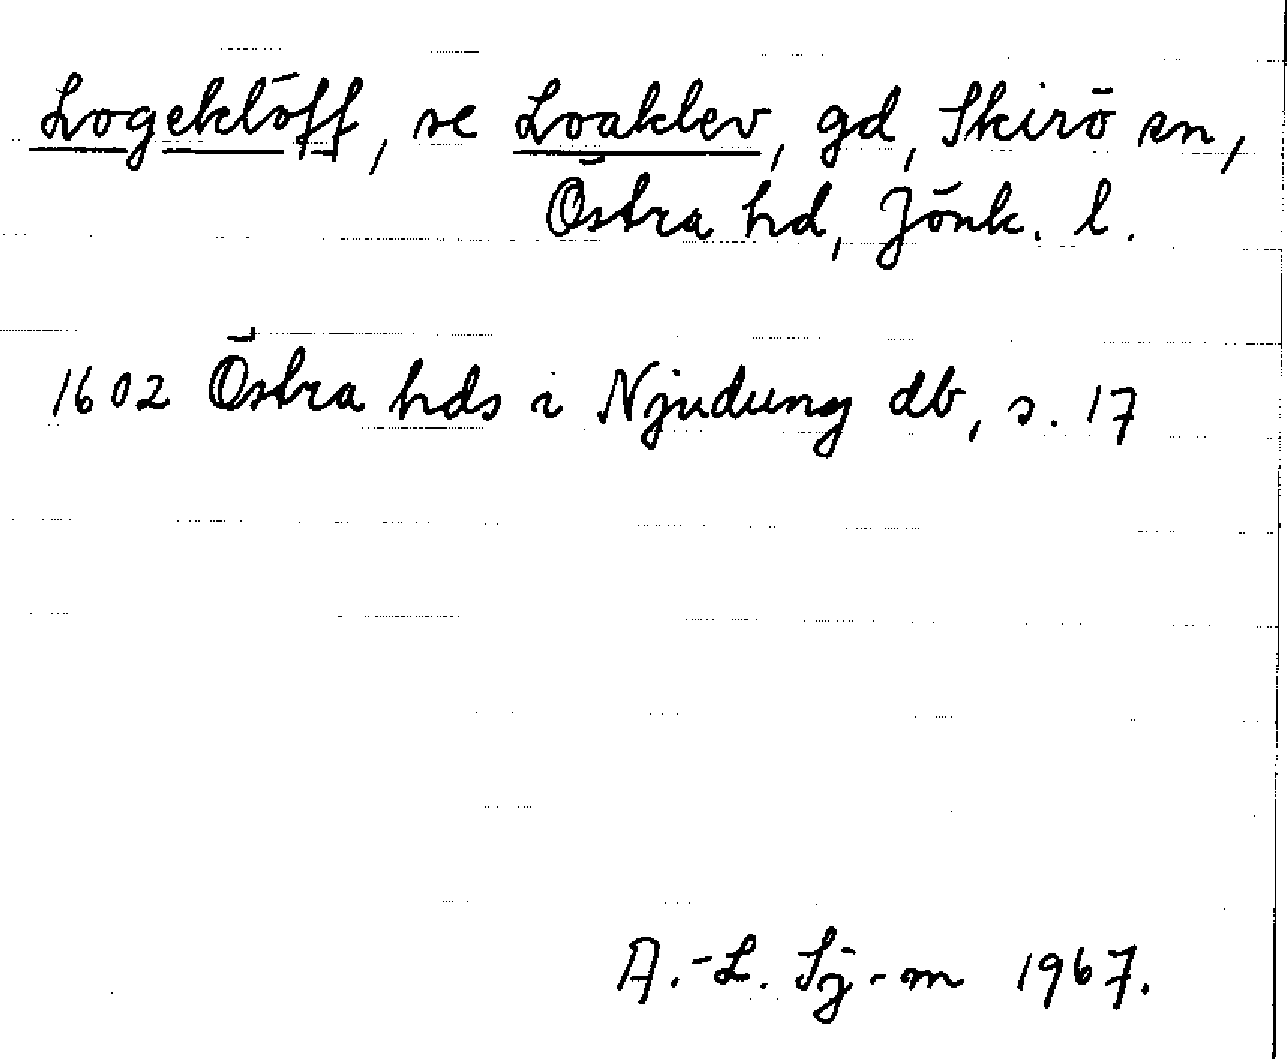 Logeklöff, se Loaklev, gd, Skirö sn,
Östra hd, Jönk. l.
1602 Östra hds i Njudung db, s. 17
A.-L. Sj-m 1967.